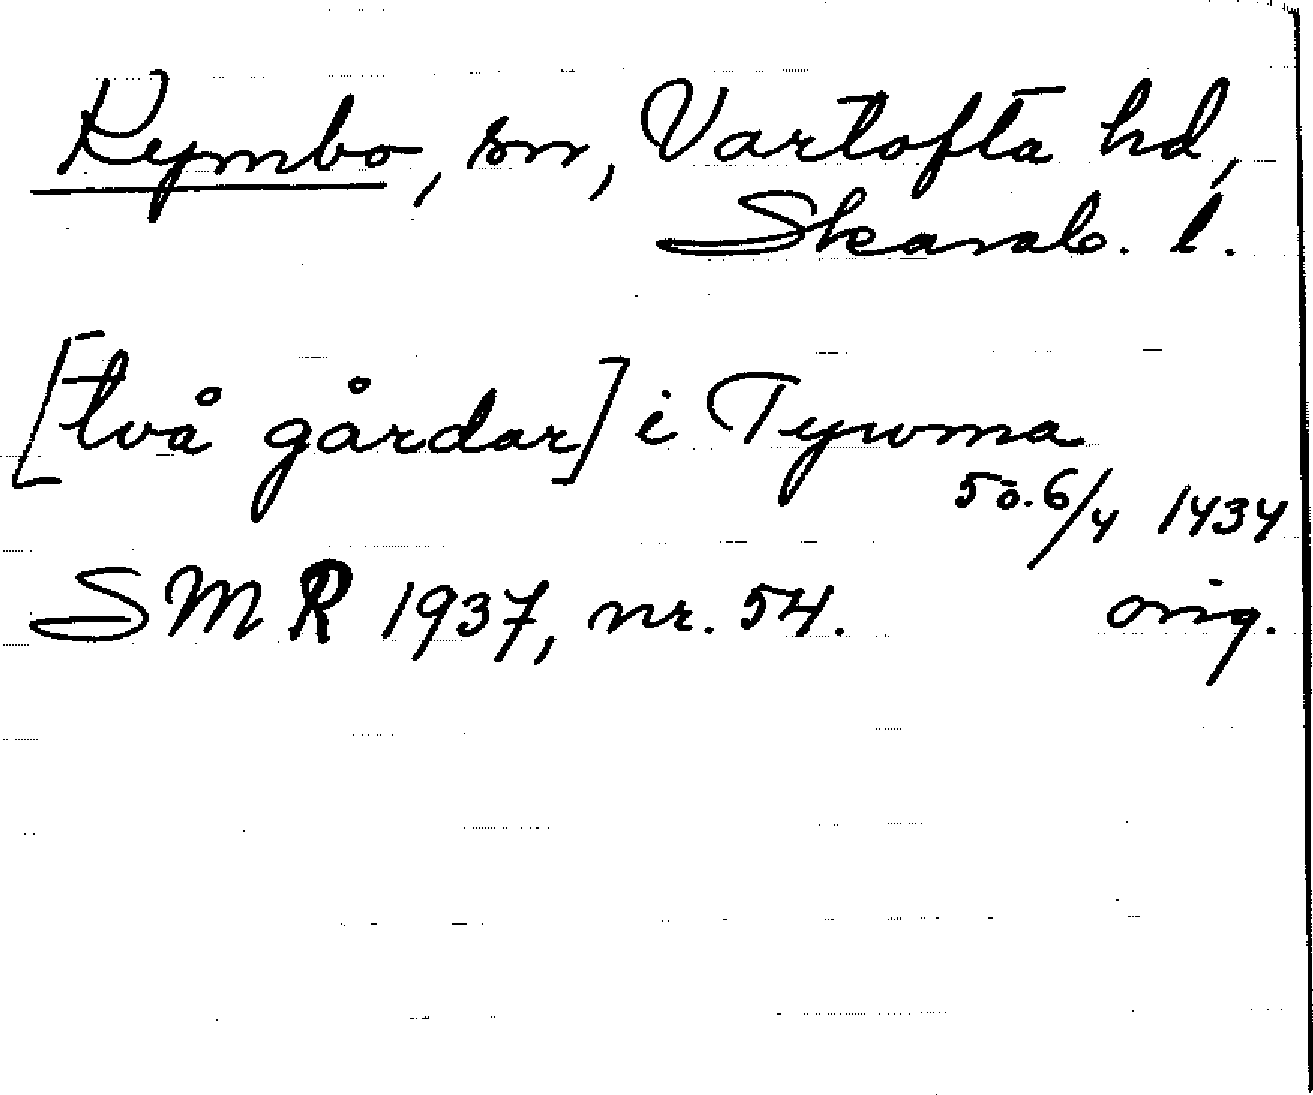 Kymbo, sn, Vartofta hd,
Skarab. l.
[två gårdar] i Tywma
SÖ. 6/4 1434
SMR 1937, nr. 54. orig.